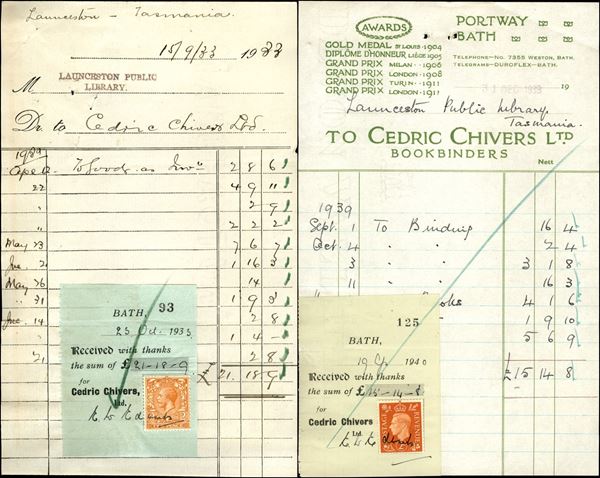 Launceston - Tasmania.
15/9/33 1933
M LAUNCESTON PUBLIC
LIBRARY.
Dr. to Cedric Chivers Ltd.
To Goods as Inv
2 8 6
22 4 9 11
" 2 9
" 2 2 2
May 23 7 6 7
June 2 1 16 3
May 26 14
" 31 1 9 3
June 14 2 8
1 4 -
21 2 8
£ 21. 18. 9
BATH, 93
23 Oct. 1933
Received with thanks
the sum of £21-18-9
for
Cedric Chivers,
Ltd.
AWARDS
GOLD MEDAL ST LOUIS·1904
DIPLÔME D'HONNEUR LIÈGE 1905
GRAND PRIX MILAN·1906
GRAND PRIX LONDON·1908
GRAND PRIX TURIN·1911
GRAND PRIX LONDON·1911
PORTWAY
BATH
TELEPHONE-No. 7355 WESTON, BATH.
TELEGRAMS-DUROFLEX-BATH.
31 DEC 1939 19
Launceston Public Library.
Tasmania.
TO CEDRIC CHIVERS LTD
BOOKBINDERS
Nett
1939
Sept. 1 To Binding 16 4
Oct 4 " " 2 4
3 " " 3 1 8
11 " " 16 3
4 1 6
1 9 10
5 6 9
£15 14 8
125
BATH,
1940
Received with thanks
the sum of £15-14-8
for
Cedric Chivers
Ltd.
POSTAGE
REVENUE